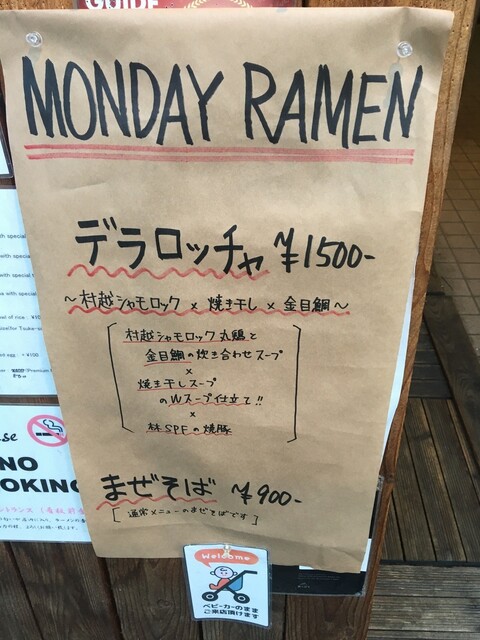 GUIDE
MONDAY RAMEN
デラロッチャ ¥1500-
～村越シャモロック × 焼き干し × 金目鯛～
村越シャモロック丸鶏と
金目鯛の炊き合わせスープ
×
焼き干しスープ
のWスープ仕立て!!
×
林SPFの焼豚
まぜそば ¥900-
[通常メニューのまぜそばです]
Welcome
ベビーカーのまま
ご来店頂けます
NO
OKING